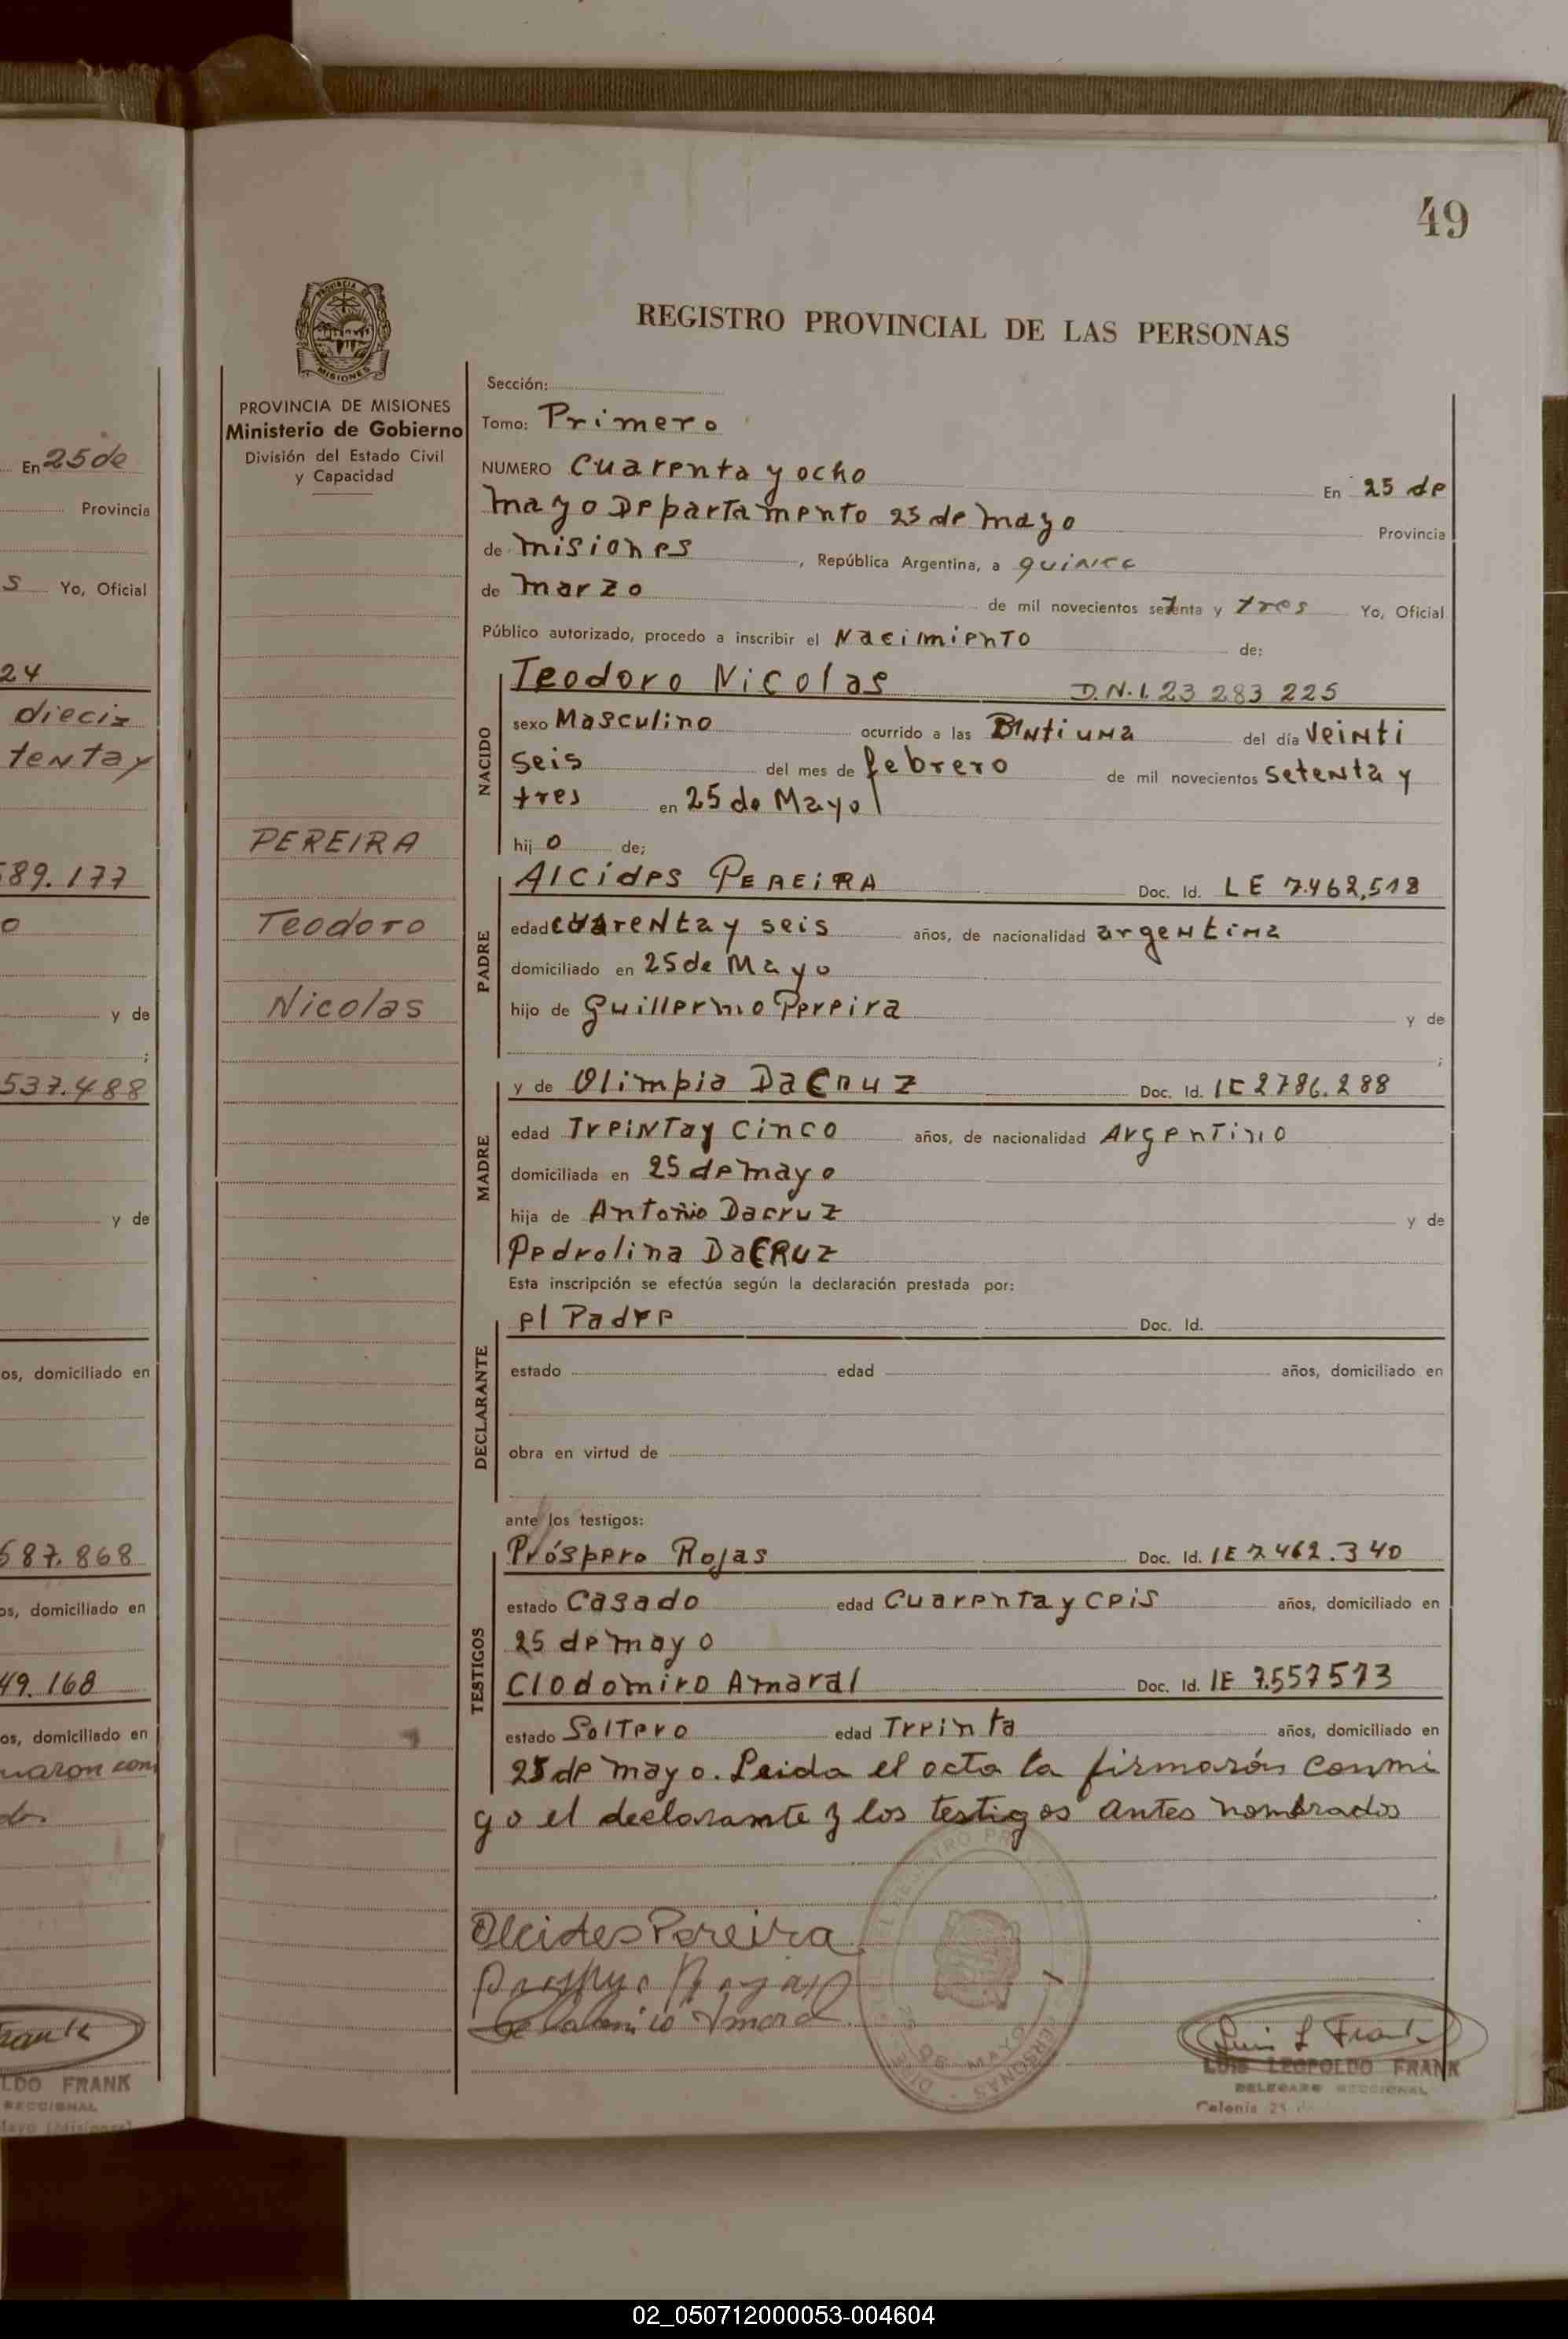 49
PROVINCIA DE MISIONES
Ministerio de Gobierno
División del Estado Civil
y Capacidad
PEREIRA
Teodoro
Nicolas
REGISTRO PROVINCIAL DE LAS PERSONAS
Sección:
Tomo: Primero
NUMERO Cuarenta y ocho En 25 de
mayo Departamento 25 de mayo Provincia
de misiones, República Argentina, a quince
de marzo de mil novecientos setenta y tres Yo, Oficial
Público autorizado, procedo a inscribir el Nacimiento de:
NACIDO
Teodoro Nicolas D.N.I. 23 283 225
sexo Masculino ocurrido a las del día Veinti
seis del mes de febrero de mil novecientos setenta y
tres en 25 de Mayo
hij o de;
PADRE
Alcides PEREIRA Doc. Id. LE 7.462,518
edad cuarenta y seis años, de nacionalidad argentina
domiciliado en 25 de Mayo
hijo de Guillermo Pereira y de
;
MADRE
y de Olimpia DaCruz Doc. Id. IC 2786.288
edad Treinta y cinco años, de nacionalidad Argentino
domiciliada en 25 de mayo
hija de Antoñio Dacruz y de
Pedrolina DaCRUZ
Esta inscripción se efectúa según la declaración prestada por:
DECLARANTE
el Padre Doc. Id.
estado edad años, domiciliado en
obra en virtud de
ante los testigos:
TESTIGOS
Próspero Rojas Doc. Id. IE 7.462.340
estado Casado edad Cuarenta y ceis años, domiciliado en
25 de mayo
Clodomiro Amaral Doc. Id. IE 7.557573
estado Soltero edad Treinta años, domiciliado en
25 de mayo. Leida el acta la firmarón conmi
go el declarante y los testigos antes nombrados
Alcides Pereira
Luis L Frank
LUIS LEOPOLDO FRANK
DELEGADO SECCIONAL
Colonia 25 de
En 25 de
Provincia
s Yo, Oficial
24
diecis
tenta y
589.177
o
y de
;
537.488
y de
os, domiciliado en
587.868
os, domiciliado en
49.168
os, domiciliado en
maron con
dos
LDO FRANK
SECCIONAL
Mayo (Misiones)
02_050712000053-004604